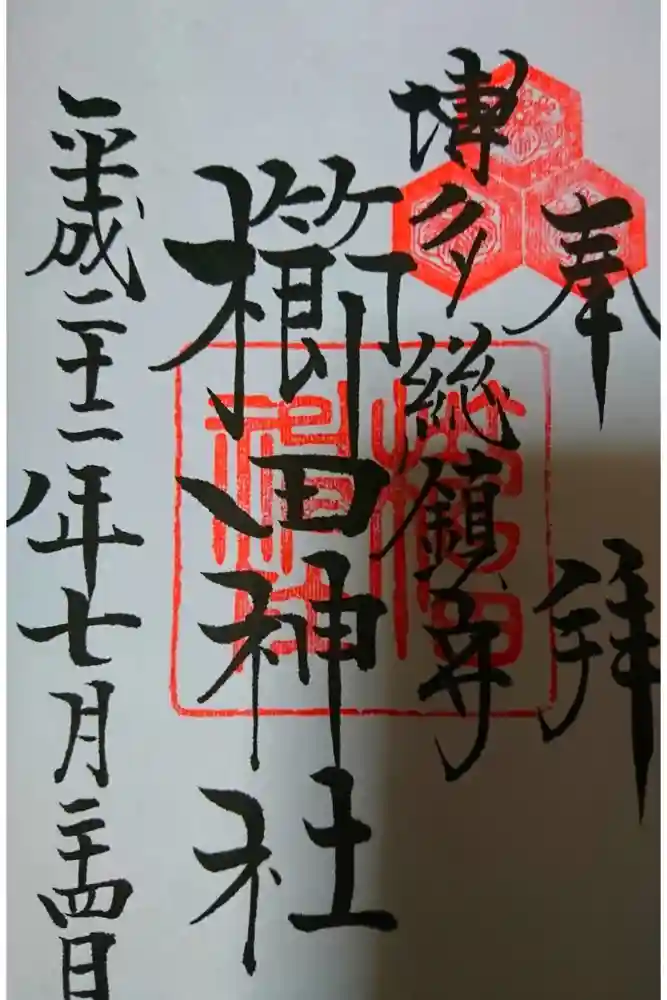 奉拝
博多総鎮守
櫛田神社
平成二十二年七月二十四日
櫛田
神社